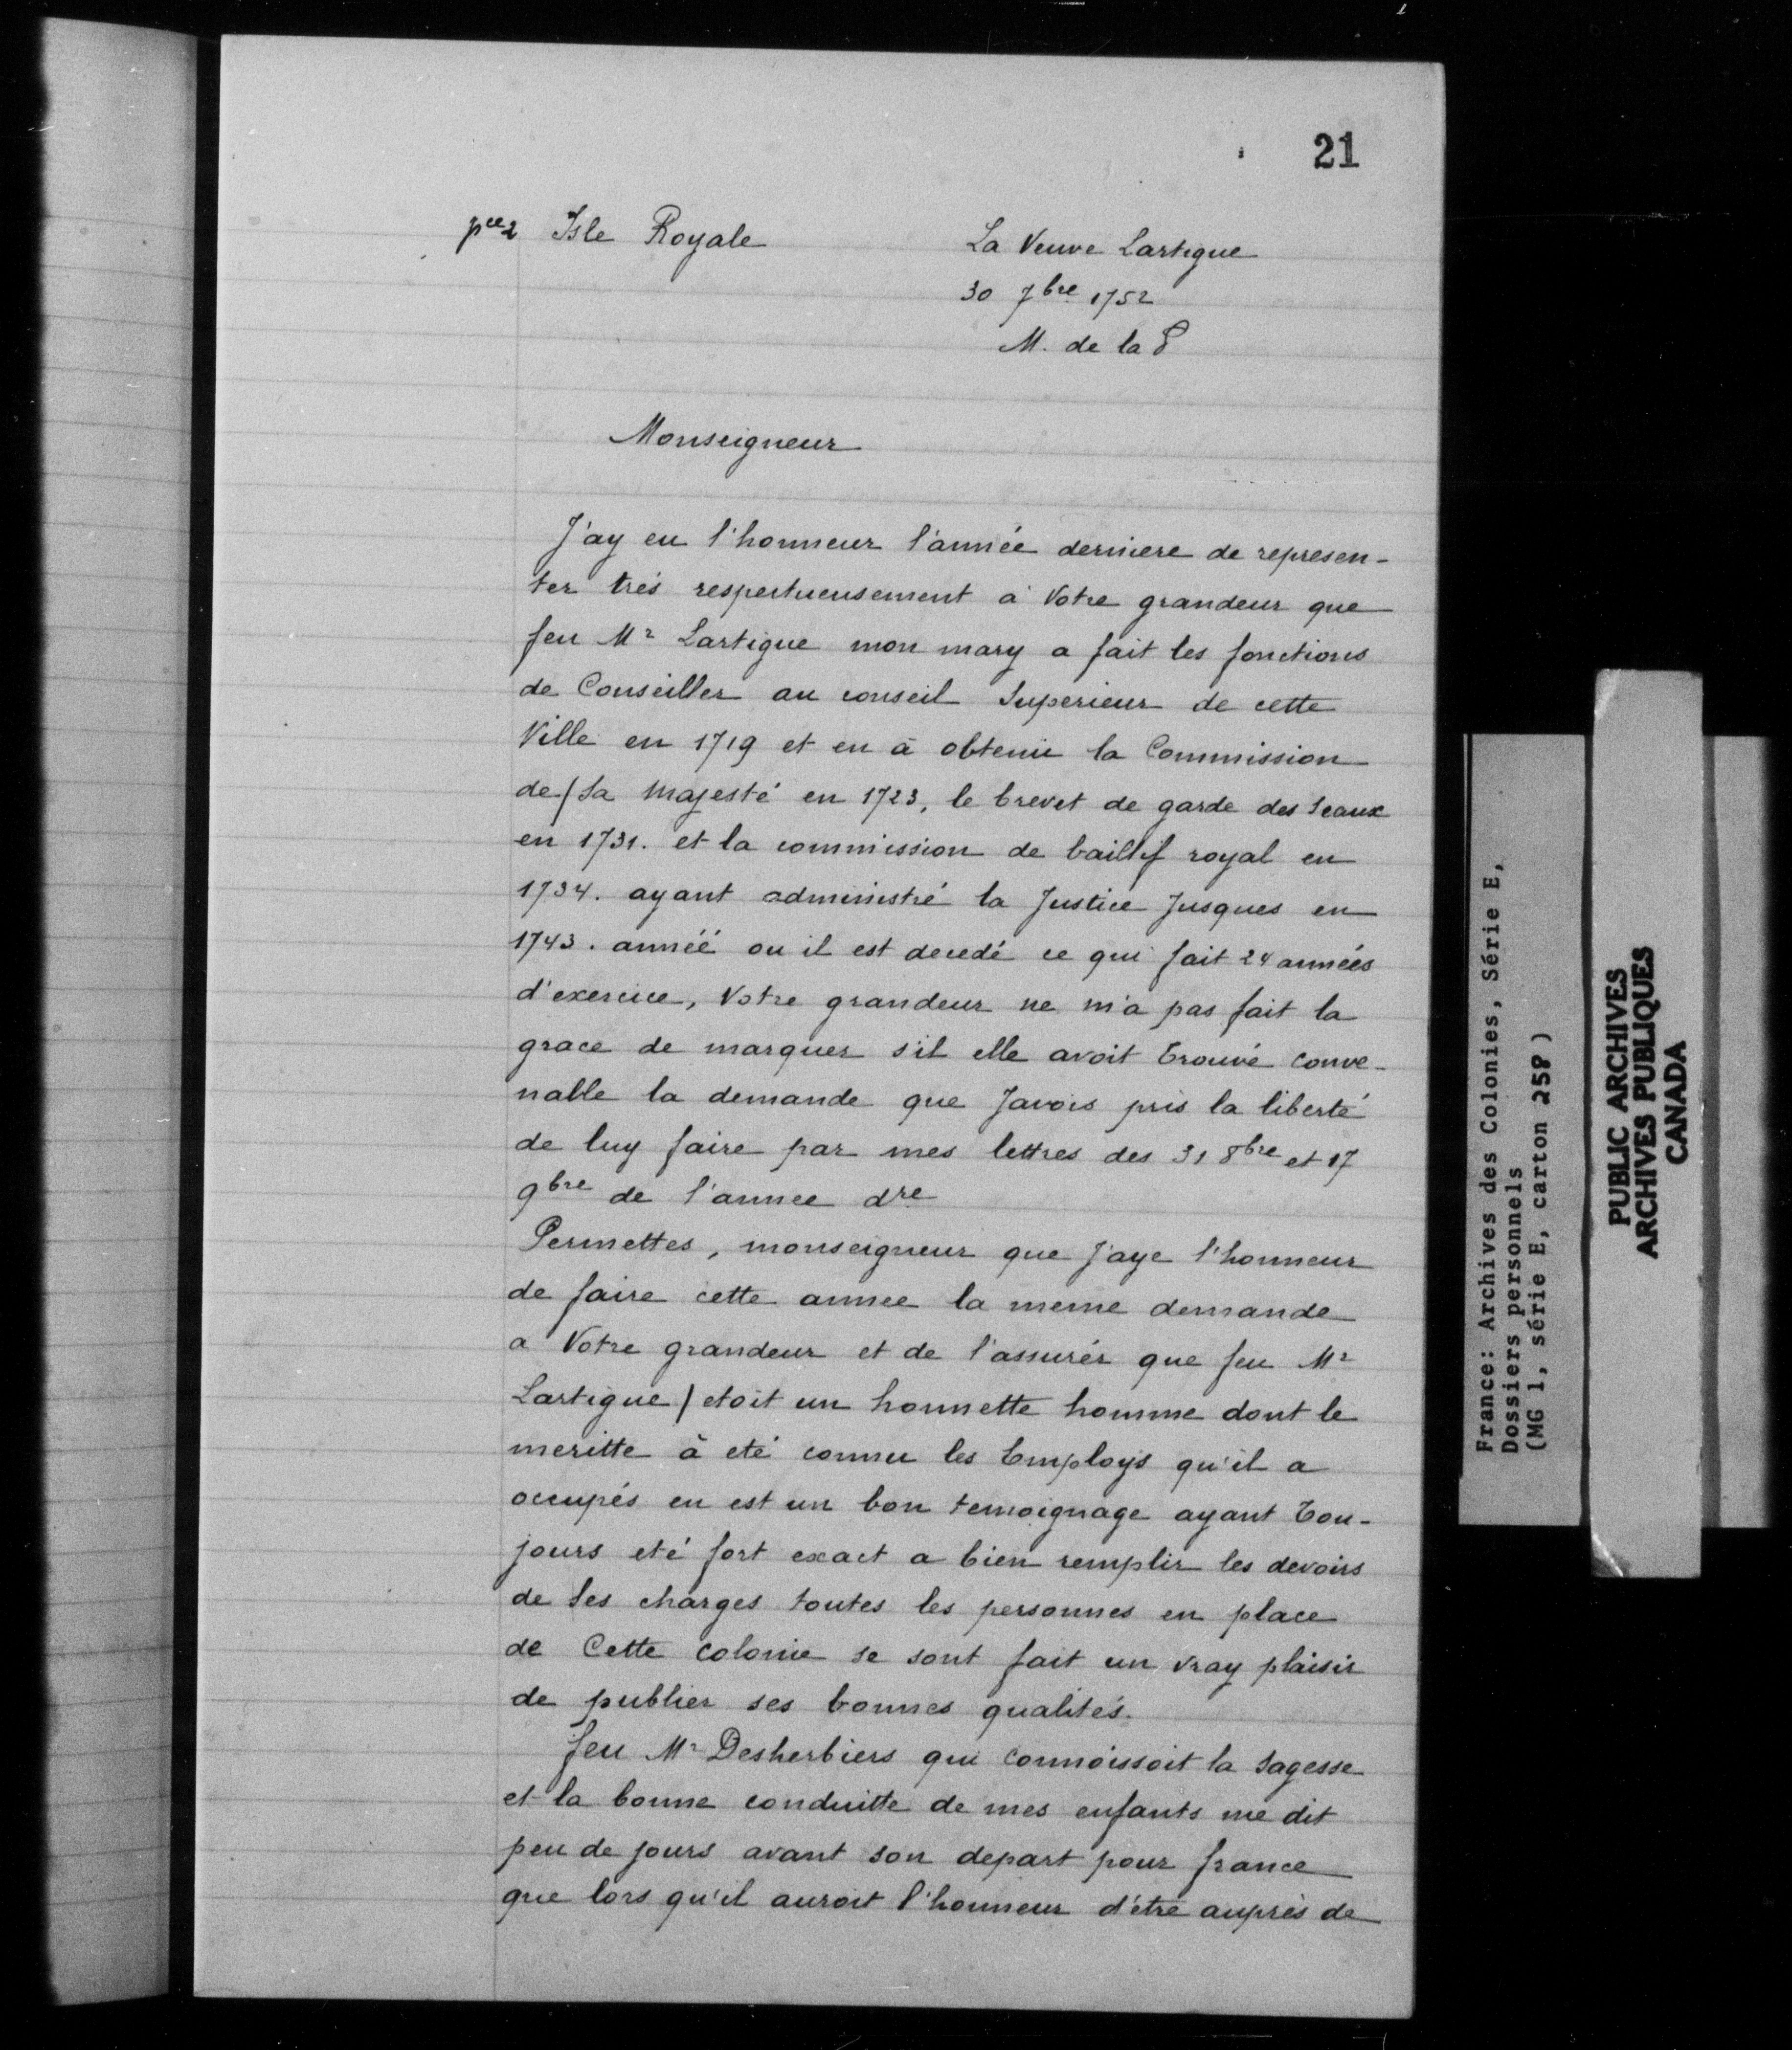 21
pce 2 Isle Royale
La Veuve Lartigue
30 7bre 1752
M. de la P
Monseigneur
J'ay eu l'honneur l'année derniere de represen-
ter trés respectueusement a Votre grandeur que
feu Mr Lartigue mon mary a fait les fonctions
de Conseiller au conseil Superieur de cette
Ville en 1719 et en à obtenu la Commission
de/Sa Majesté en 1723, le brevet de garde des Seaux
en 1731. et la commission de baillif royal en
1734. ayant administré la Justice Jusques en
1743. annéé ou il est decedé ce qui fait 24 années
d'exercice, Votre grandeur ne m'a pas fait la
grace de marquer s'il elle avoit trouvé conve-
nable la demande que Javois pris la liberté
de luy faire par mes lettres des 31 8bre et 17
9bre de l'annee dre
Permettes, monseigneur que J'aye l'honneur
de faire cette annee la meme demande
a Votre grandeur et de l'assurér que feu Mr
Lartigue/etoit un honnette homme dont le
meritte à eté connu les Employs qu'il a
occupés en est un bon temoignage ayant tou-
jours eté fort exact a bien remplir les devoirs
de Ses charges toutes les personnes en place
de Cette colonie se sont fait un vray plaisir
de publier ses bonnes qualités.
feu Mr Desherbiers qui connoissoit la Sagesse
et la bonne conduitte de mes enfants me dit
peu de jours avant son depart pour france
que lors qu'il auroit l'honneur d'étre auprés de
France: Archives des Colonies, Série E,
Dossiers personnels
(MG 1, série E, carton 258 )
PUBLIC ARCHIVES
ARCHIVES PUBLIQUES
CANADA